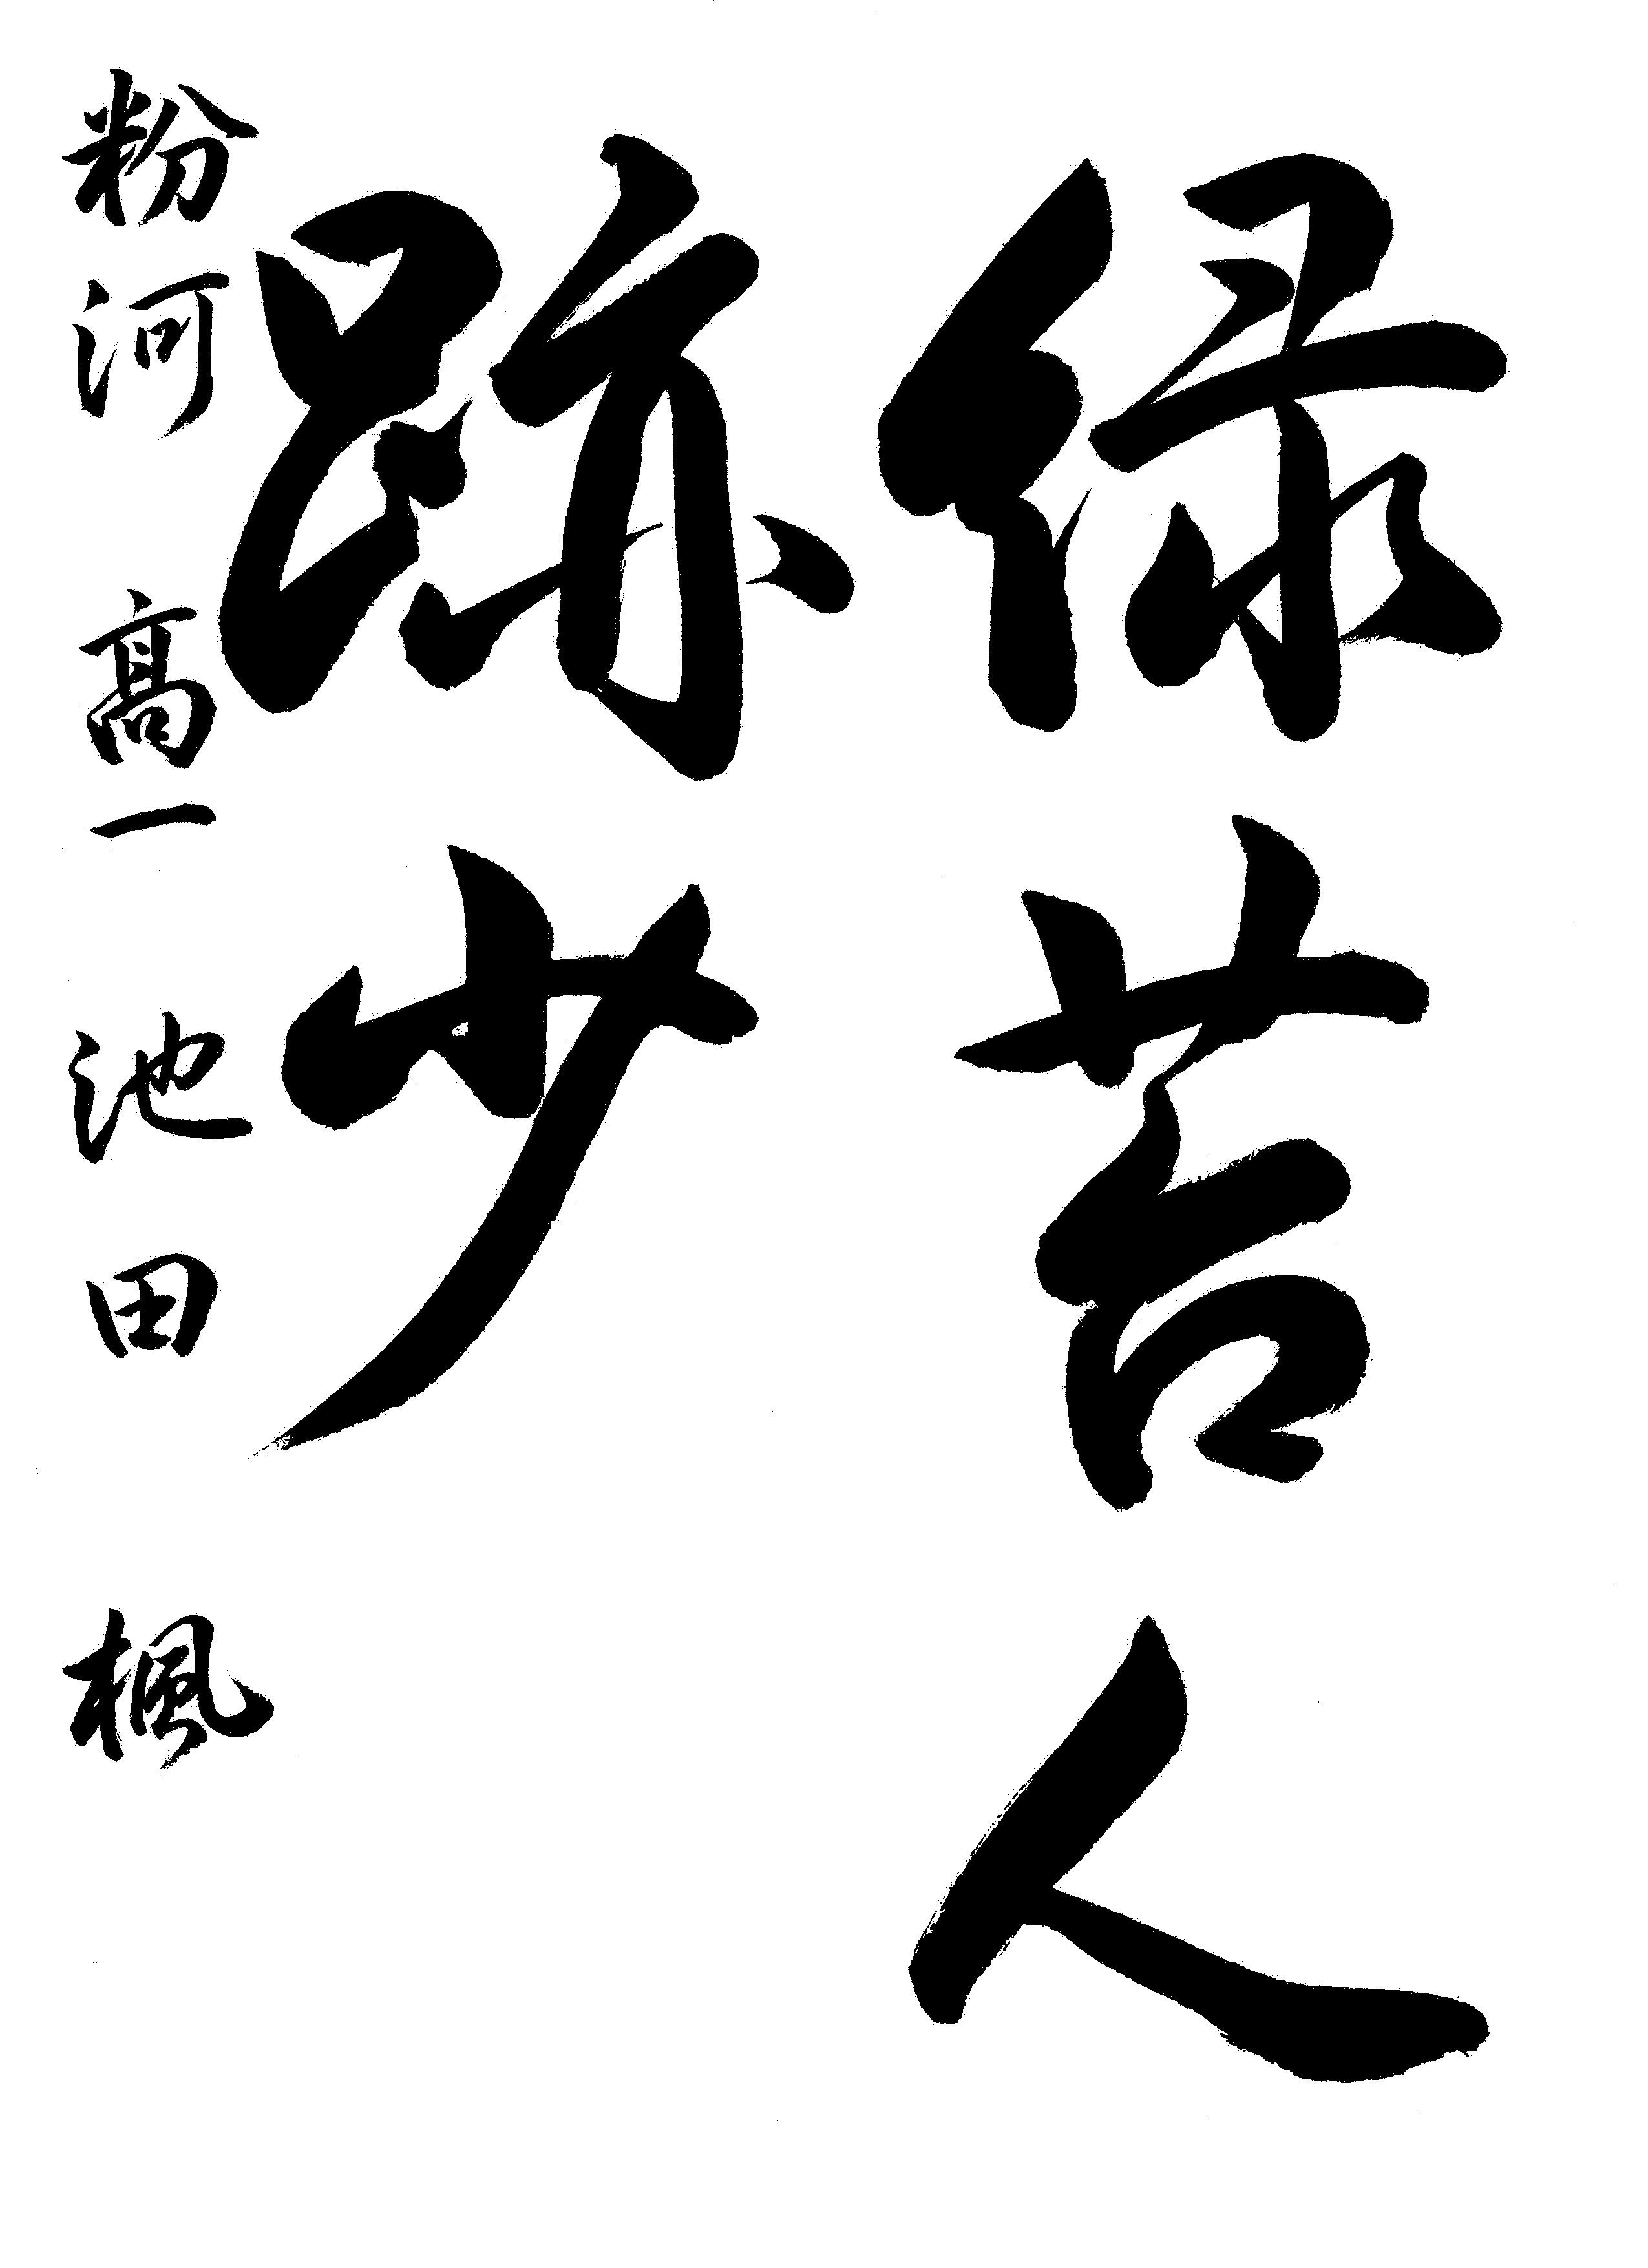 緑苔人
跡少
粉河 高一 池田 楓